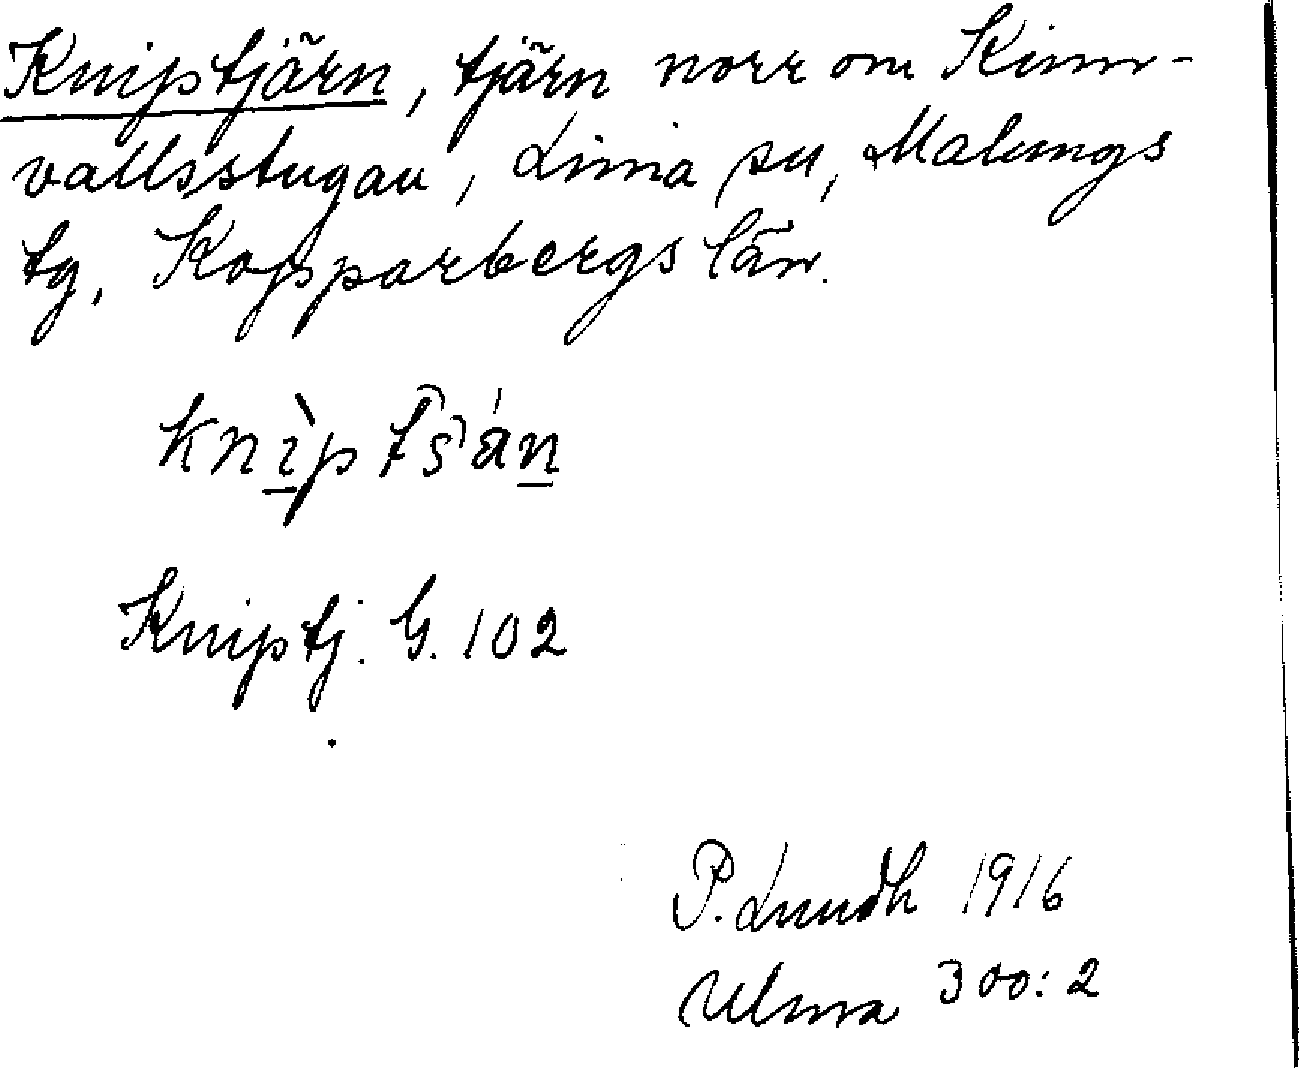 Kniptjärn, tjärn norr om Kinn-
vallsstugan, Lima sn, Malungs
tg, Kopparbergs län.
Kniptj. G. 102
P. Lundh 1916
Ulma 300:2